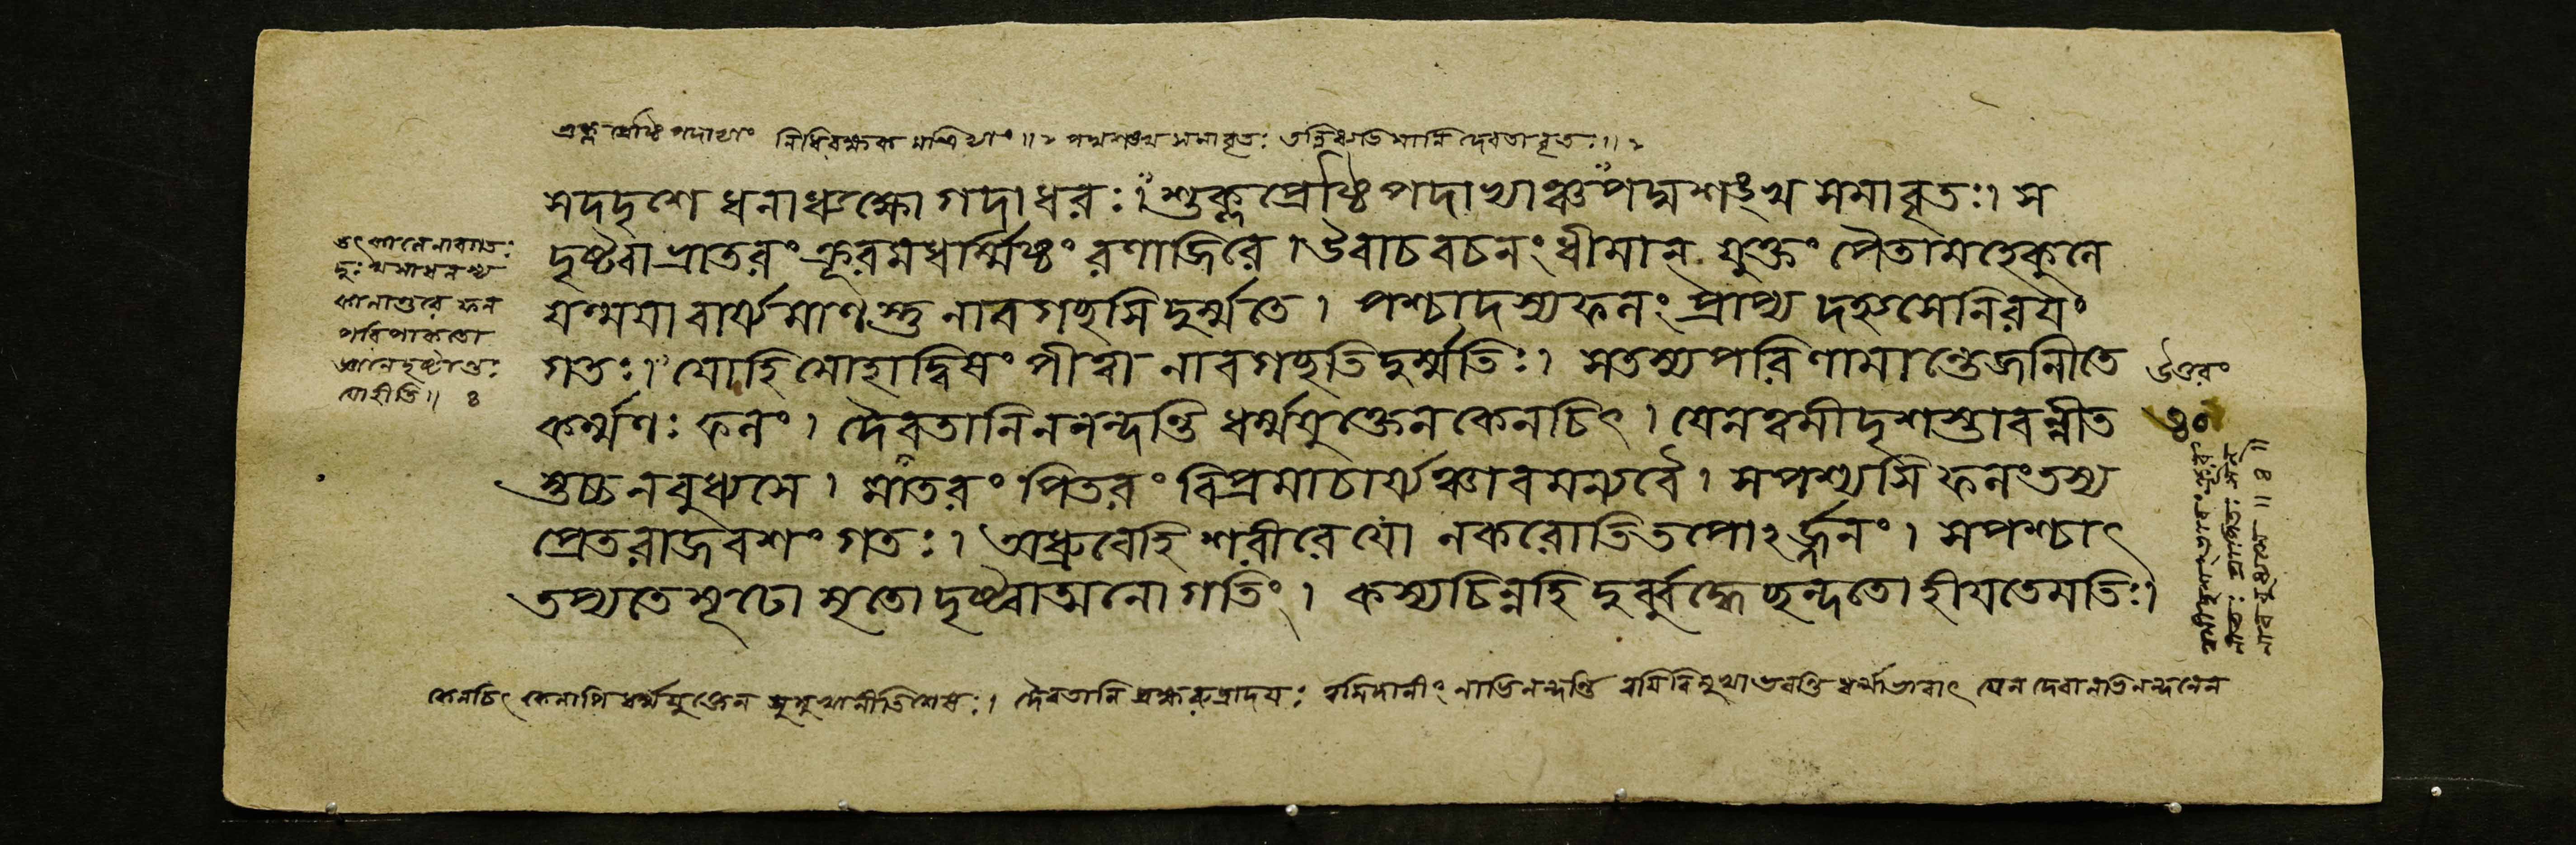 শুক্লপ্রোষ্ঠিপদাখ্যাং নিধিরক্ষক মন্ত্রিভ্যাং॥ ১ পদ্মশঙ্খ সমাবৃতঃ তন্নিধ্যভিমানি দেবতাবৃতঃ॥ ১
সদদৃশে ধনাধ্যক্ষো গদাধরঃ। শুক্লপ্রোষ্ঠিপদাখ্যাঞ্চ পদ্মশঙ্খ সমাবৃতঃ। স
দৃষ্ট্বা ভ্রাতরং ক্রূরমধর্ম্মিষ্ঠং রণাজিরে। উবাচ বচনং ধীমান্ যুক্তং পৈতামহেকুলে
যন্ময়া বার্য্যমাণস্তু নাবগচ্ছসি দুর্ম্মতে। পশ্চাদস্য ফলং প্রাপ্য দহ্যসে নিরয়ং
গতঃ। যোহি মোহাদ্বিষং পীত্বা নাবগচ্ছতি দুর্ম্মতিঃ। সতস্য পরিণামান্তে জানীতে
কর্ম্মণঃ ফলং। দৈবতানি ননন্দন্তি ধর্ম্মযুক্তেন কেনচিৎ। যেনত্বমীদৃশম্ভাবন্নীত
স্তচ্চ নবুধ্যসে। মাতরং পিতরং বিপ্রমাচার্য্যঞ্চাবমন্যবৈ। সপশ্যসি ফলং তস্য
প্রেতরাজবশং গতঃ। অধ্রুবেহি শরীরে যো নকরোতি তপোঽর্জ্জনং। সপশ্চাৎ
তপ্যতে মূঢো মৃতো দৃষ্ট্বাত্মনো গতিং। কস্যচিন্নহি দুর্ব্বুদ্ধেশ্ছন্দতো হীয়তে মতিঃ।
দুঃখসাধনস্য
পরিপাকতো
যোহীতি॥ ৪
উত্তরং
৪০
নাববুধ্যসে॥ ৪॥
কেনচিৎ কেনাপি ধর্ম্মযুক্তেন সুমুখানীতিশেষঃ। দৈবতানি ব্রহ্মরুদ্রাদয়ঃ নাভিনন্দন্তি ধর্ম্মাভাবাৎ যেন দেবানভিনন্দনেন